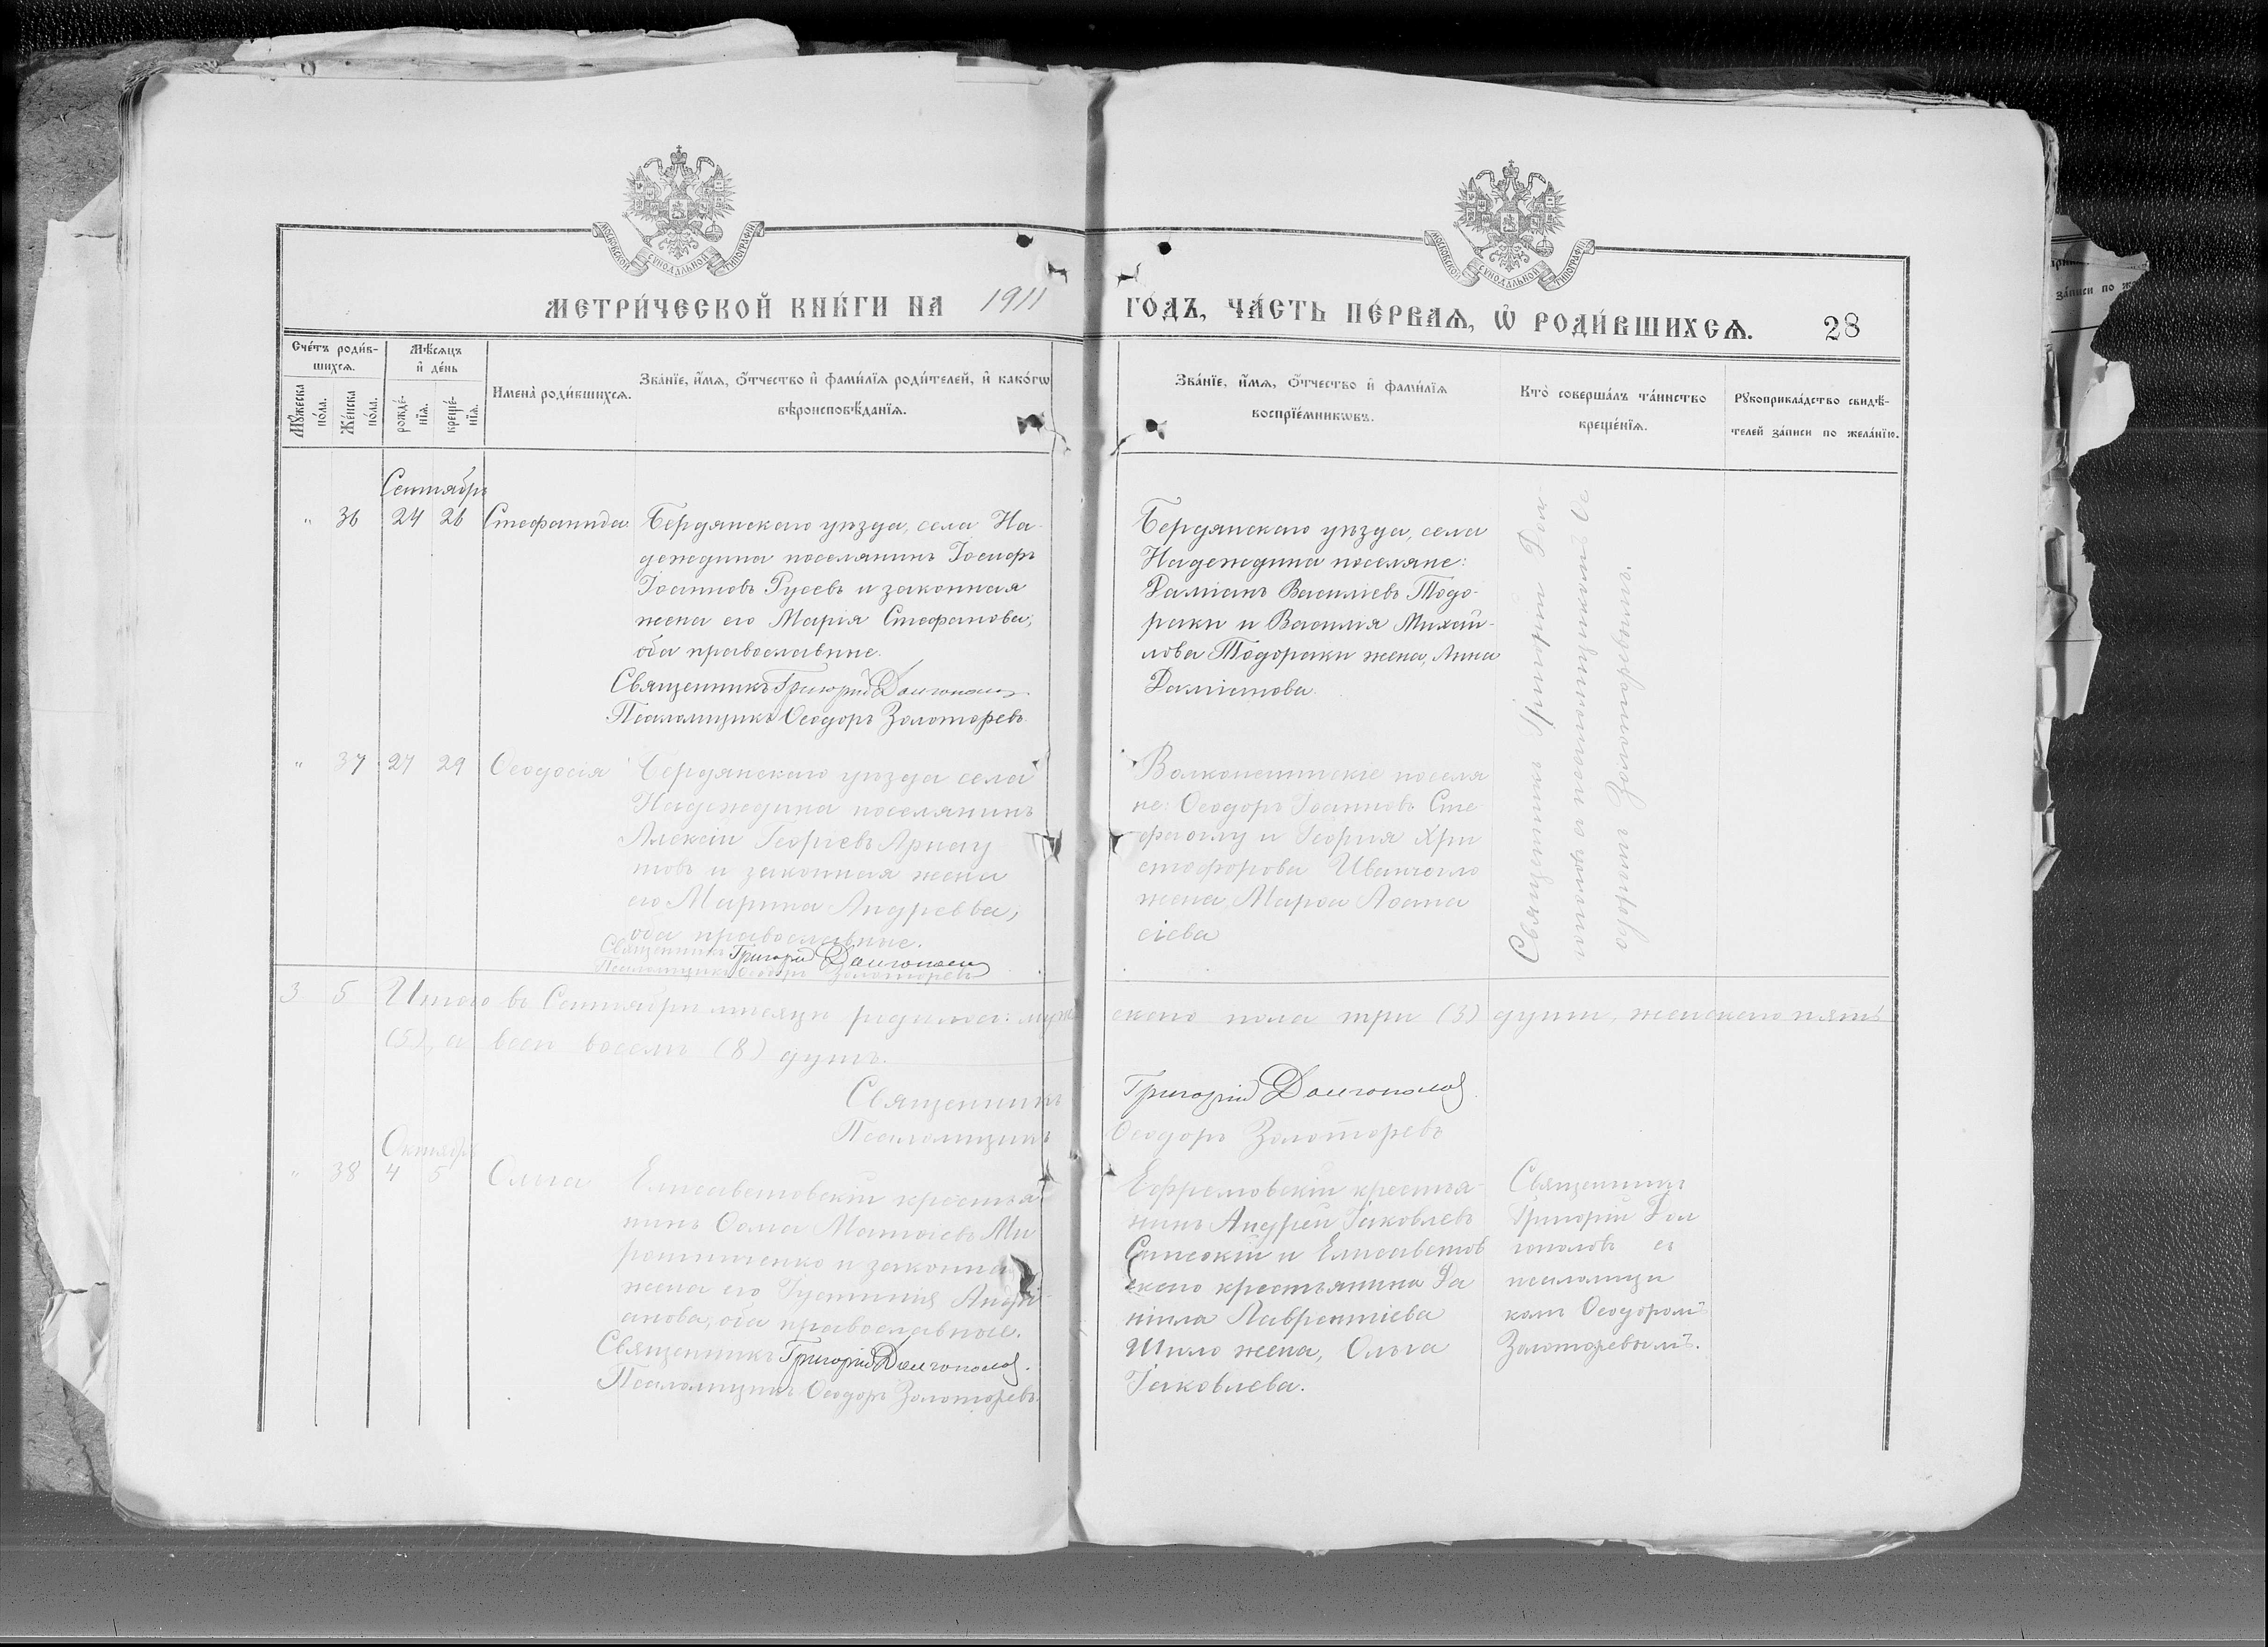 МОСКОВСКОЙ СѴНОДАЛЬНОЙ ТИПОГРАФІИ
МОСКОВСКОЙ СѴНОДАЛЬНОЙ ТИПОГРАФІИ
МЕТРИ́ЧЕСКОЙ КНИ́ГИ НА 1911 ГО́ДЪ, ЧА́СТЬ ПЕ́РВАѦ, Ѡ҆ РОДИ́ВШИХСѦ. 28
Сче́тъ роди́в-
шихсѧ.
Мꙋ́жеска по́ла.
Же́нска по́ла.
Мѣ́сѧцъ
и҆ де́нь
рожде́-
нїѧ.
креще́-
нїѧ.
Имена̀ роди́вшихсѧ.
Зва́нїе, и҆́мѧ, ѻ҆́тчество и҆ фами́лїѧ роди́телей, и҆ како́гѡ
вѣроисповѣ́данїѧ.
Зва́нїе, и҆́мѧ, ѻ҆́тчество и҆ фами́лїѧ
воспрїе́мникѡвъ.
Кто̀ соверша́лъ та́инство
креще́нїѧ.
Рꙋкоприкла́дство свидѣ́-
телей за́писи по жела́нїю.
Сентябрь
" 36 24 26 Стефанида
Бердянскаго уѣзда, села На-
деждина поселянинъ Іосифъ
Іоанновъ Гусевъ и законная
жена его Марія Стефанова,
оба православные.
Священникъ Григорій Долгополов
Псаломщикъ Ѳеодоръ Золоторевъ
Бердянскаго уѣзда, села
Надеждина поселяне:
Даміанъ Василіевъ Тодо-
раки и Василия Михай-
лова Тодораки жена, Анна
Даміанова.
Священникъ Григорій Дол-
Золоторевымъ.
" 37 27 29 Ѳеодосія
Бердянскаго уѣзда села
Надеждина поселянинъ
Алексій Георгіевъ Арнау
товъ и законная жена
его Марина Андреева,
оба православные.
Священникъ Григорій Долгополов
Псаломщикъ Ѳеодоръ Золоторевъ
поселя
не: Ѳеодоръ Іоанновъ Сте
фоглу и Георгия Хри
стофорова
жена, Марѳа Аѳана
сіева
3 5 Итого въ Сентябрѣ мѣсяцѣ родилось: муж
скаго пола три (3) души, женскаго пять
(5), а всех восемь (8) душъ.
Священникъ Григорій Долгополов
Псаломщикъ Ѳеодоръ Золоторевъ
Октябрь
" 38 4 5 Ольга
Елисаветовскій крестья
нинъ Ѳома Матѳіевъ Ми
рошниченко и законная
жена его Іустинія Андрі
анова, оба православные.
Священникъ Григорій Долгополов.
Псаломщикъ Ѳеодоръ Золоторевъ.
Ефремовскій крестья-
нинъ Андрей Іаковлевъ
и Елисаветов
скаго крестьянина Да
ніила Лаврентіева
Шило жена, Ольга
Іаковлева.
Священникъ
Григорій Дол
гополовъ съ
псаломщи
комъ Ѳеодоромъ
Золоторевымъ.